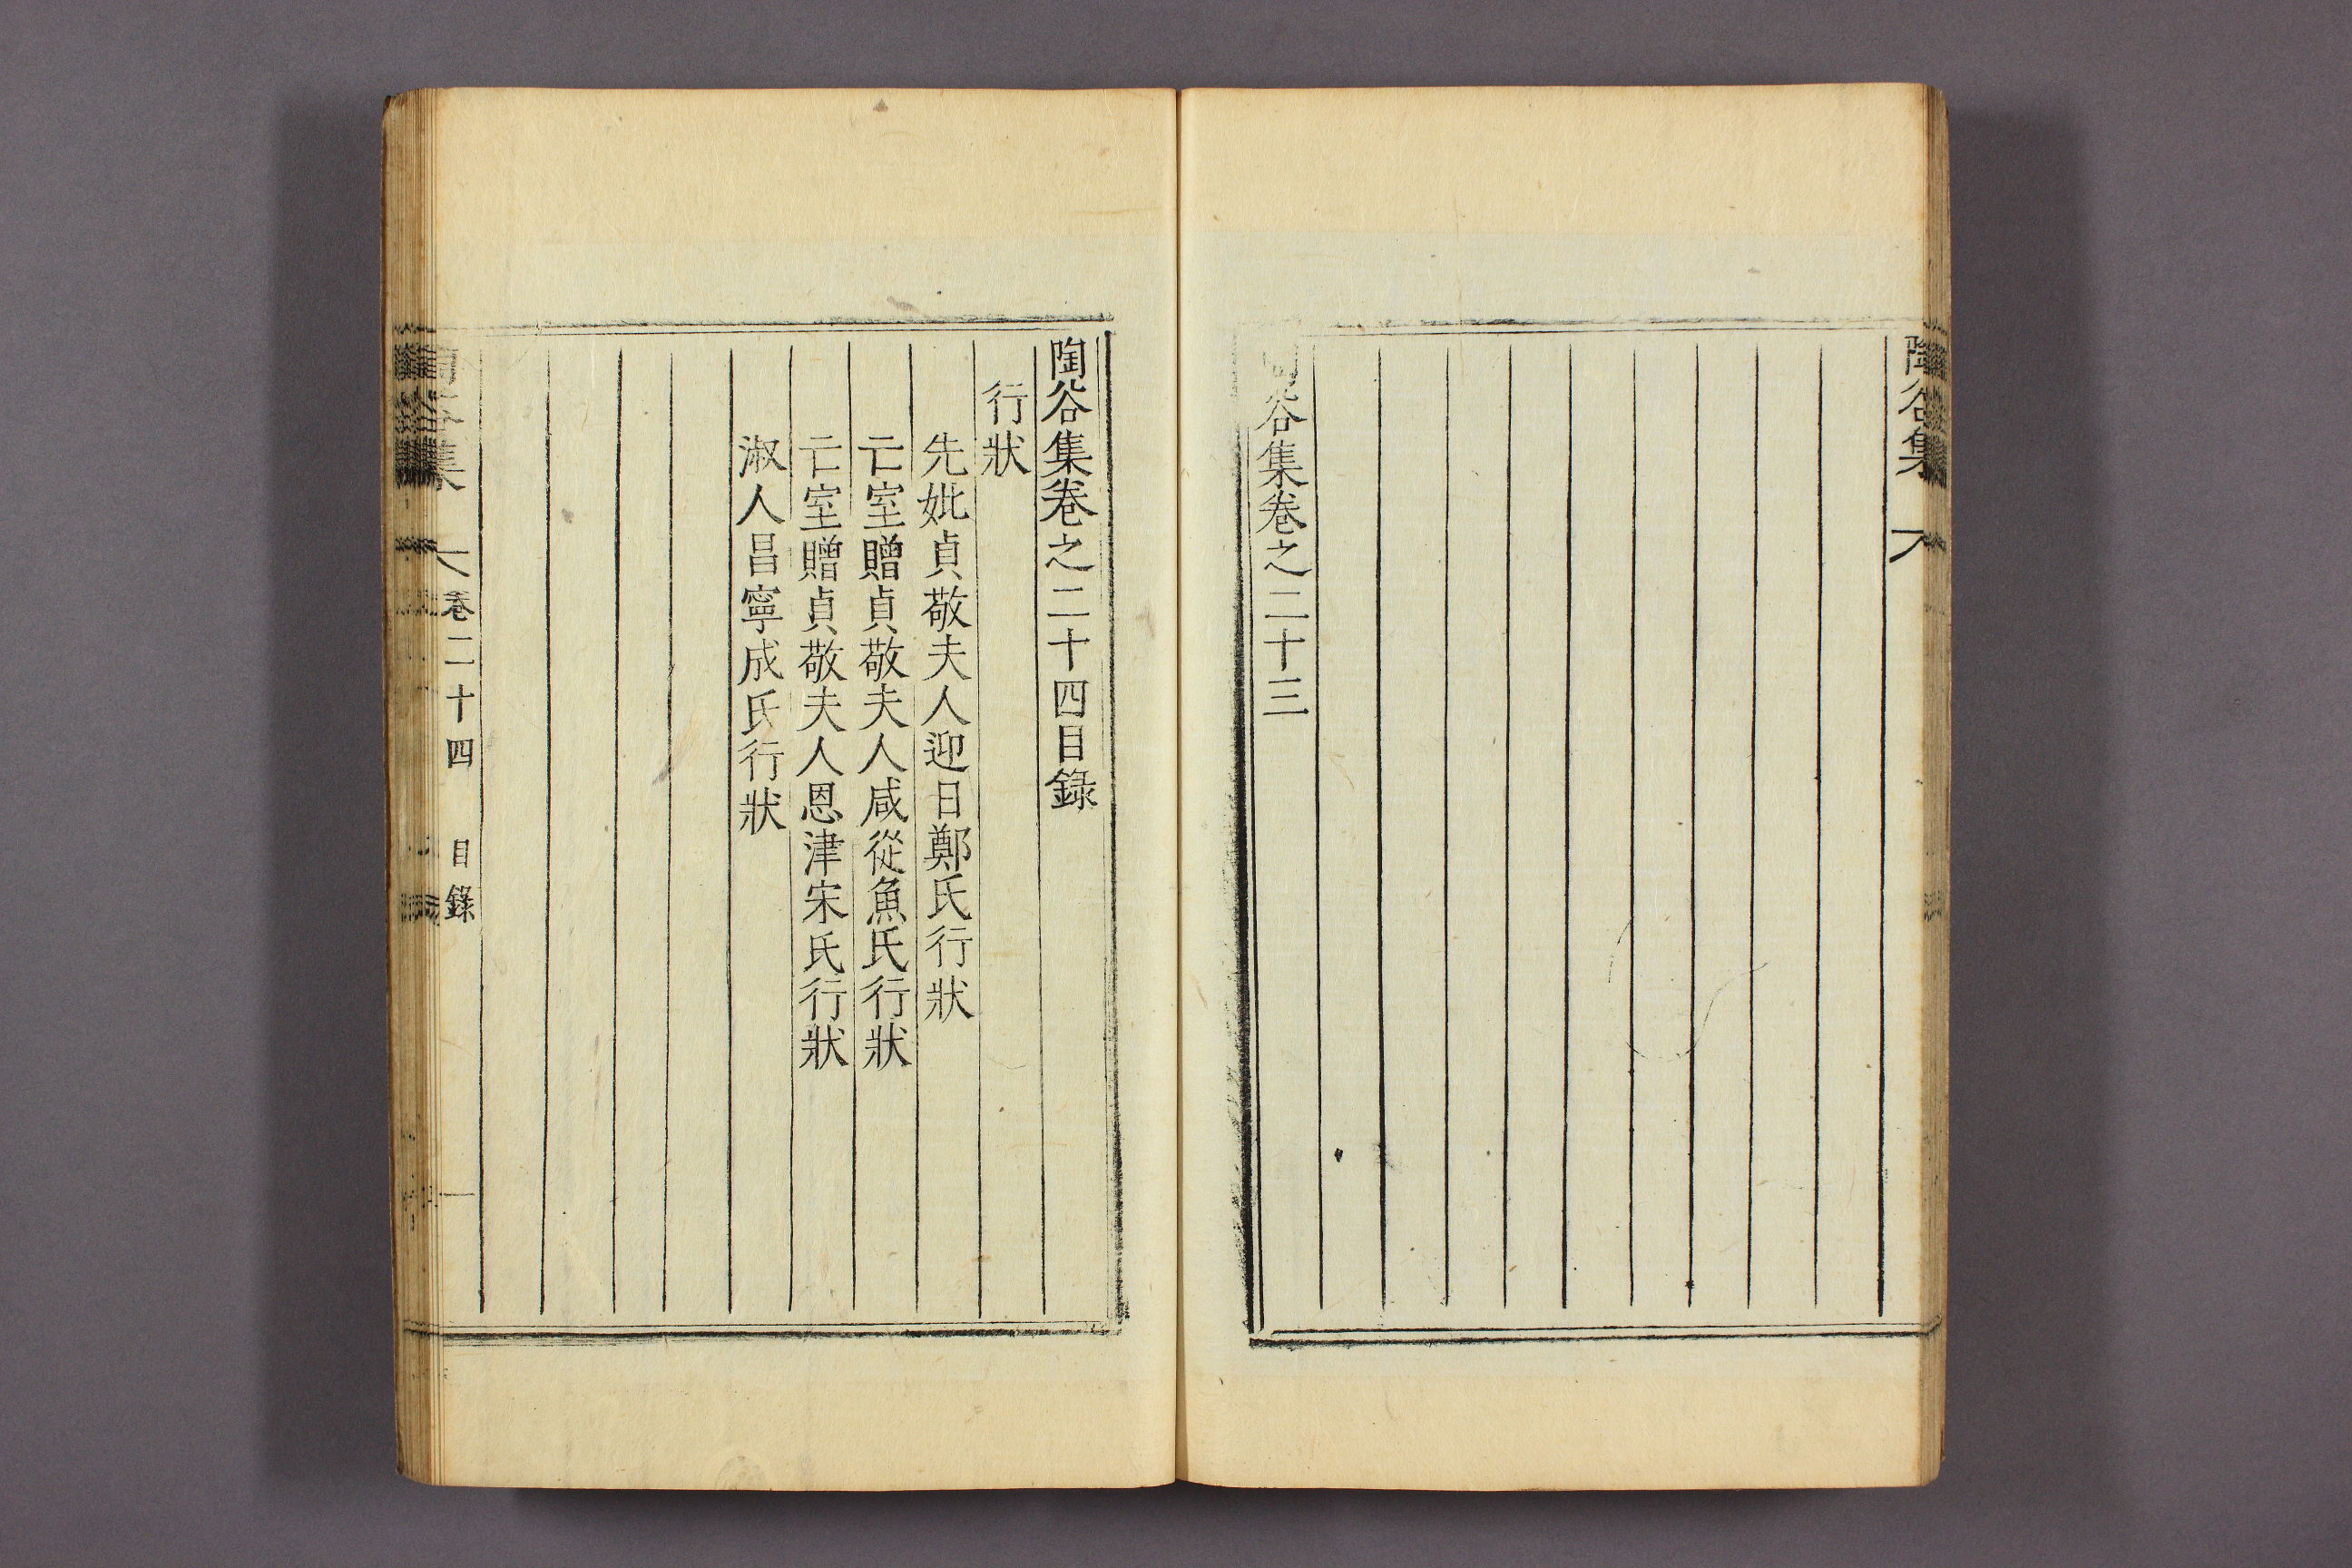 陶谷集
陶谷集卷之二十三
陶谷集卷之二十四目錄
行狀
先妣貞敬夫人迎日鄭氏行狀
亡室贈貞敬夫人咸從魚氏行狀
亡室贈貞敬夫人恩津宋氏行狀
淑人昌寧成氏行狀
陶谷集 卷二十四 目錄 一